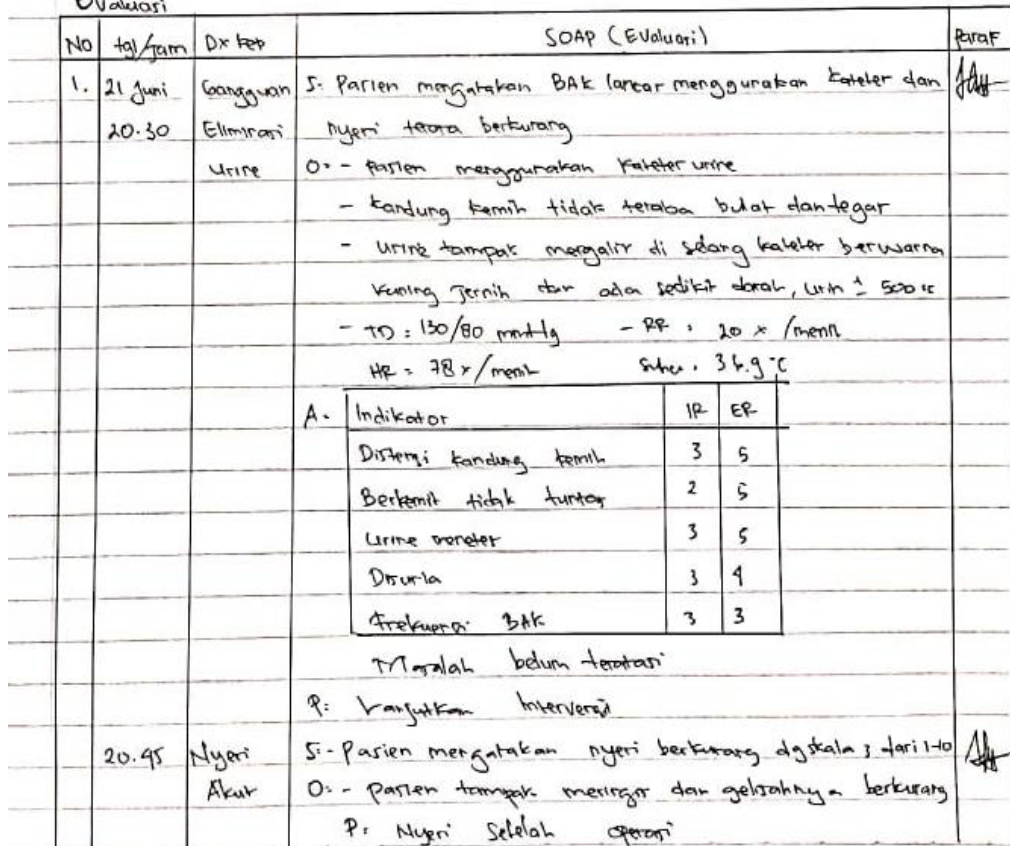 Evaluasi
No tgl/jam Dx kep SOAP (Evaluasi) Paraf
1. 21 Juni Gangguan S: Pasien mengatakan BAK lancar menggunakan kateter dan
20.30 Eliminasi nyeri terasa berkurang
Urine O: - Pasien menggunakan kateter urine
- kandung kemih tidak teraba bulat dan tegar
- urine tampak mengalir di selang kateter berwarna
kuning jernih dan ada sedikit darah, urin ± 500 cc
- TD : 130/80 mmHg - RR : 20 x /menit
HR = 78 x/menit Suhu : 36.9 °C
A. Indikator IR ER
Distensi kandung kemih 3 5
Berkemih tidak tuntas 2 5
Urine menetes 3 5
Disuria 3 4
Frekuensi BAK 3 3
Masalah belum teratasi
P: Lanjutkan Intervensi
20.45 Nyeri S: - Pasien mengatakan nyeri berkurang dg skala 3 dari 1-10
Akut O: - pasien tampak meringis dan gelisahnya berkurang
P: Nyeri setelah operasi